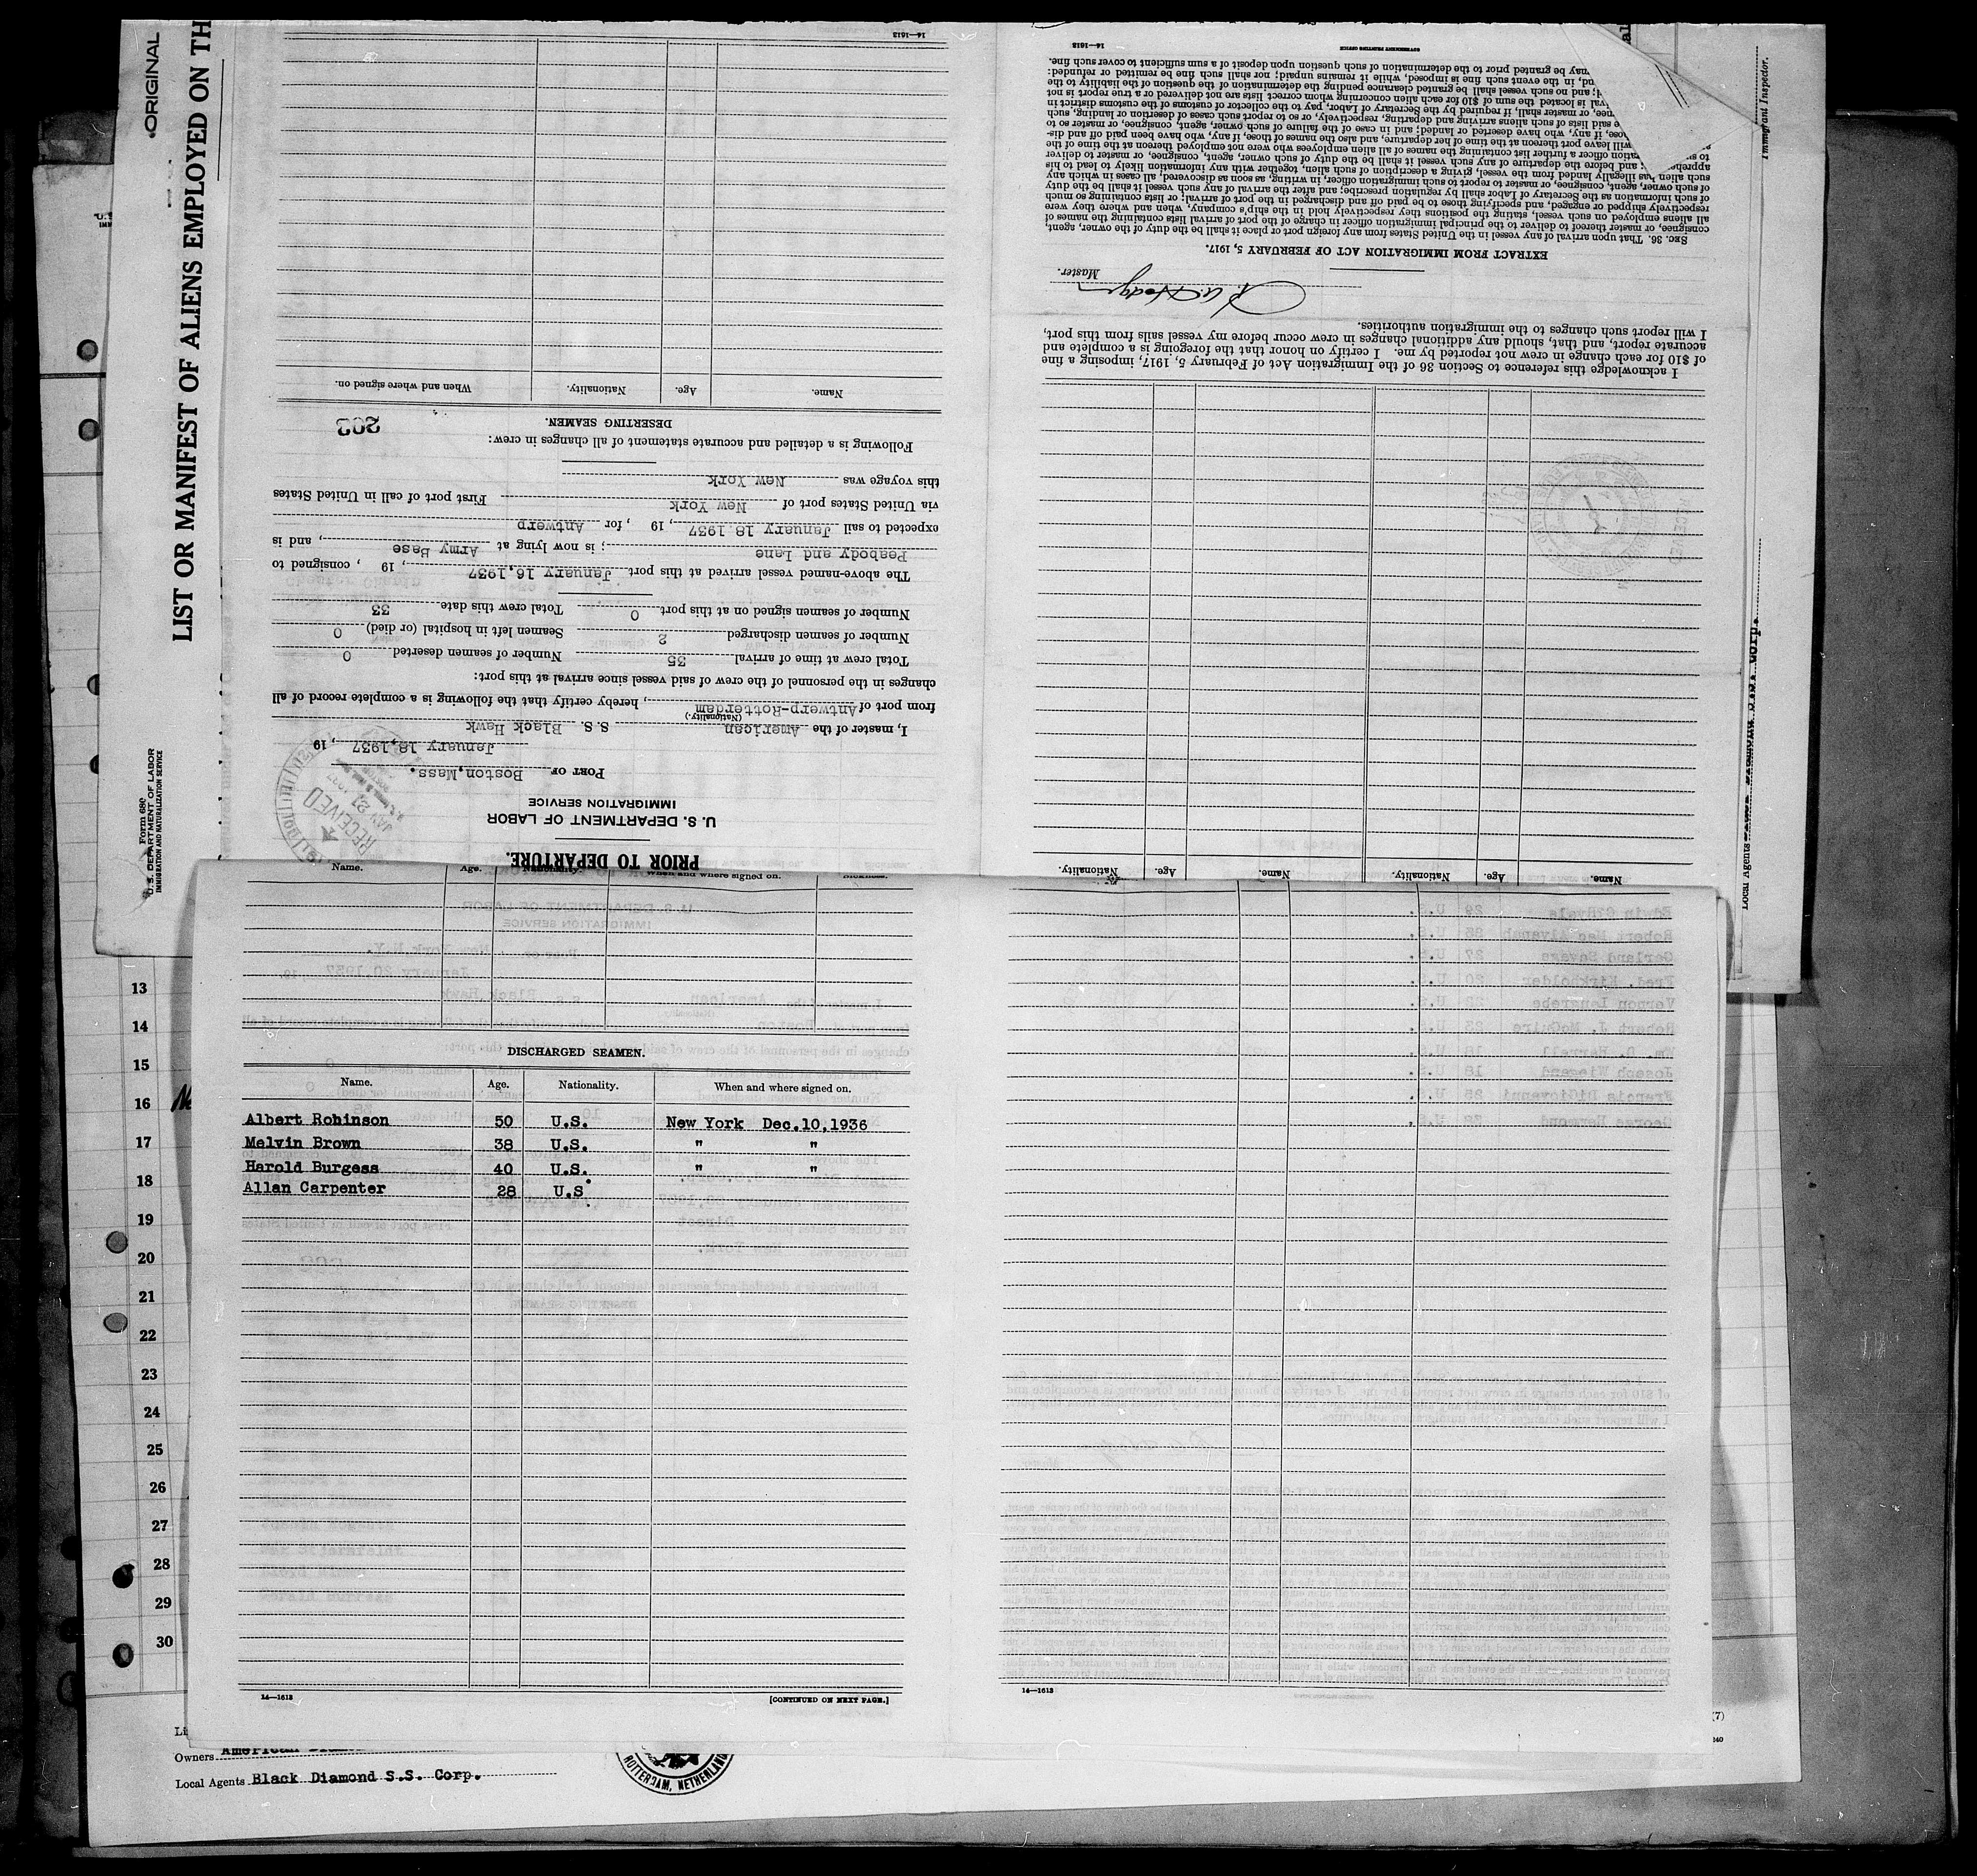 ORIGINAL
LIST OR MANIFEST OF ALIENS EMPLOYED ON TH
Form 680
U. S. DEPARTMENT OF LABOR
IMMIGRATION AND NATURALIZATION SERVICE
PRIOR TO DEPARTURE.
U. S. DEPARTMENT OF LABOR
IMMIGRATION SERVICE
RECEIVED
PORT OF Boston,Mass.
January 18,1937, 19
I, master of the American S.S. Black Hawk
(Nationality.)
from port of Antwerp-Rotterdam, hereby certify that the following is a complete record of all
changes in the personnel of the crew of said vessel since arrival at this port:
Total crew at time of arrival 35 Number of seamen deserted 0
Number of seamen discharged 2 Seamen left in hospital (or died) 0
Number of seamen signed on at this port 0 Total crew this date 33
The above-named vessel arrived at this port January 16,1937, 19 , consigned to
Peabody and Lane; is now lying at Army Base, and is
expected to sail January 18 1937, 19 , for Antwerp
via United States port of New York First port of call in United States
this voyage was New York
Following is a detailed and accurate statement of all changes in crew:
203
DESERTING SEAMEN.
Name. Age. Nationality. When and where signed on.
14—1613
Name. Age. Nationality. Name. Age. Nationality.
I acknowledge this reference to Section 36 of the Immigration Act of February 5, 1917, imposing a fine
of $10 for each change in crew not reported by me. I certify on honor that the foregoing is a complete and
accurate report, and that, should any additional changes in crew occur before my vessel sails from this port,
I will report such changes to the immigration authorities.
Master.
EXTRACT FROM IMMIGRATION ACT OF FEBRUARY 5, 1917.
SEC. 36. That upon arrival of any vessel in the United States from any foreign port or place it shall be the duty of the owner, agent,
consignee, or master thereof to deliver to the principal immigration officer in charge of the port of arrival lists containing the names of
all aliens employed on such vessel, stating the positions they respectively hold in the ship's company, when and where they were
respectively shipped or engaged, and specifying those to be paid off and discharged in the port of arrival; or lists containing so much
of such information as the Secretary of Labor shall by regulation prescribe; and after the arrival of any such vessel it shall be the duty
of such owner, agent, consignee, or master to report to such immigration officer, in writing, as soon as discovered, all cases in which any
such alien has illegally landed from the vessel, giving a description of such alien, together with any information likely to lead to his
appreh and before the departure of any such vessel it shall be the duty of such owner, agent, consignee, or master to deliver
to su ration officer a further list containing the names of all alien employees who were not employed thereon at the time of the
will leave port thereon at the time of her departure, and also the names of those, if any, who have been paid off and dis-
ose, if any, who have deserted or landed; and in case of the failure of such owner, agent, consignee, or master so to
e said lists of such aliens arriving and departing, respectively, or so to report such cases of desertion or landing, such
nee, or master shall, if required by the Secretary of Labor, pay to the collector of customs of the customs district in
val is located the sum of $10 for each alien concerning whom correct lists are not delivered or a true report is not
; and no such vessel shall be granted clearance pending the determination of the question of the liability to the
nd, in the event such fine is imposed, while it remains unpaid; nor shall such fine be remitted or refunded:
may be granted prior to the determination of such question upon deposit of a sum sufficient to cover such fine.
14—1613 GOVERNMENT PRINTING OFFICE
Immigrant Inspector.
Local Agents
Name. Age. Nationality. When and where signed on. Sickness.
DISCHARGED SEAMEN.
Name. Age. Nationality. When and where signed on.
Albert Robinson 50 U.S. New York Dec.10,1936
Melvin Brown 38 U.S. " "
Harold Burgess 40 U.S. " "
Allan Carpenter 28 U.S.
14—1613 [CONTINUED ON NEXT PAGE.]
14—1613
13
14
15
16
17
18
19
20
21
22
23
24
25
26
27
28
29
30
(7)
Owners American
Local Agents Black Diamond S.S. Corp.
ROTTERDAM, NETHERLAND